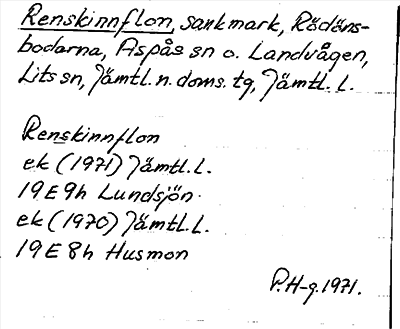 Renskinnflon, sankmark, Rödöns-
bodarna, Aspås sn o. Landvågen,
Lits sn, Jämtl. n. doms. tg, Jämtl. l.
Renskinnflon
ek (1971) Jämtl. l.
19E 9h Lundsjön
ek (1970) Jämtl. l.
19E 8h Husmon
P.H-g. 1971.